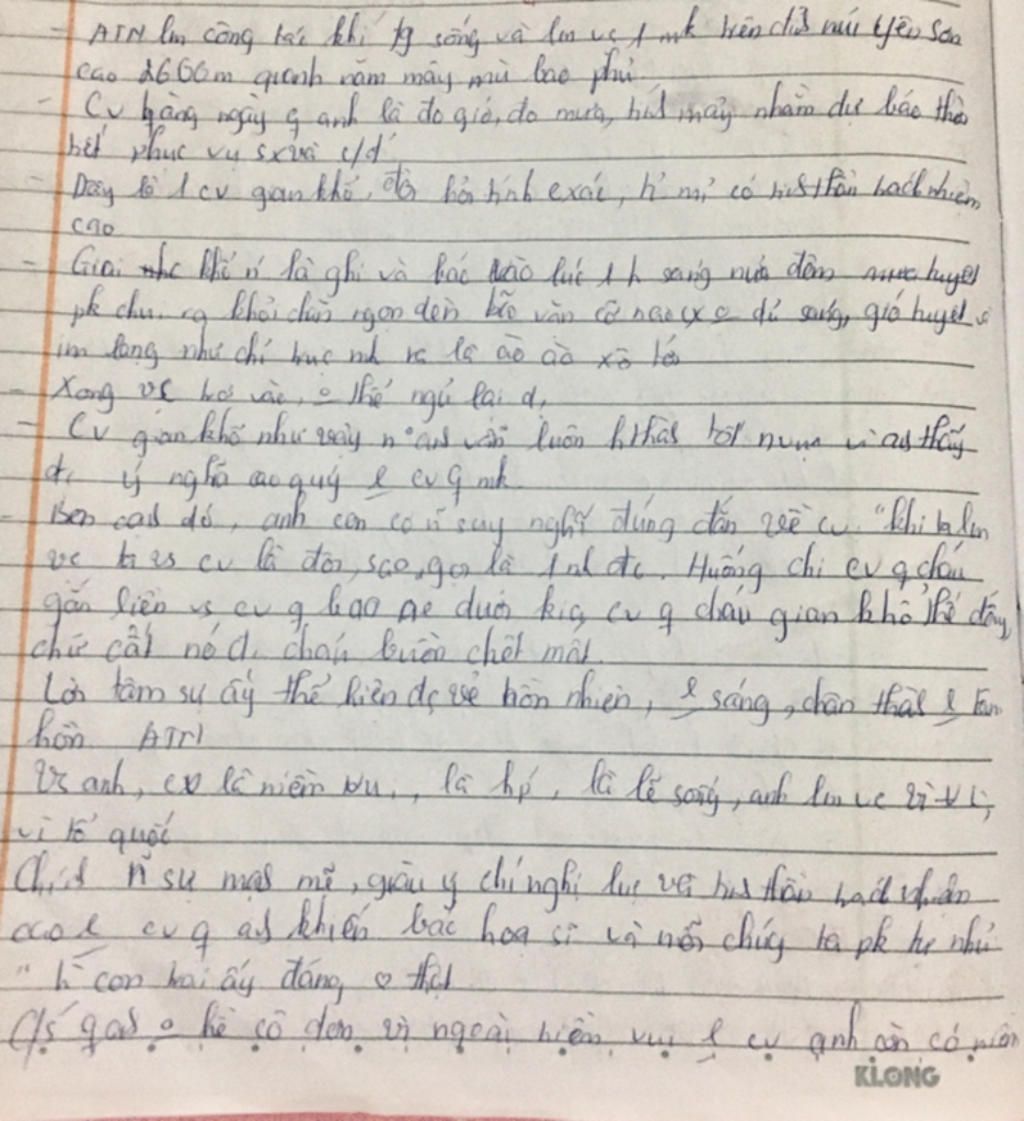 - ATN lm công tác khí tg sống và lm vc 1 mk trên đỉnh núi Yên Sơn
cao 2600m quanh năm mây mù bao phủ
- Cv hàng ngày q anh là đo gió, đo mưa, tính mây nhằm dự báo thời
tiết phục vụ sx và c/đ
- Đây là 1 cv gian khổ, đòi hỏi tính cxác, tỉ mỉ có tinh thần trách nhiệm
cao
- Gian khổ là ghi và báo vào lúc 1h sáng nửa đêm tuyết
pk chui ra khỏi chăn ngọn đèn bão vặn cỡ nào cx đủ sáng, gió tuyết
im lặng như chỉ trực mk ra là ào ào xô tới
- Xong vc trở vào, thể ngủ lại đ
- Cv gian khổ như vậy anh vẫn luôn vì anh thấy
đc ý nghĩa cao quý cv q mk
- Bên cạnh đó, anh còn có suy nghĩ đúng đắn về cv "khi ta lm
vc ta vs cv là đôi, sao gọi là 1 mk đc. Huống chi cv q cháu
gắn liền vs cv q bao ae dưới kia, cv q cháu gian khổ thế đấy
chứ cất nó đi cháu buồn chết mất
Lời tâm sự ấy thể hiện đc vẻ hồn nhiên, sáng, chân thật tâm
hồn ATN
Vs anh, cv là niềm vui, là hp, là lẽ sống, anh lm vc vì
vì tổ quốc
Chính sự mạnh mẽ, giàu ý chí nghị lực và tinh thần trách nhiệm
cao cv q anh khiến bác họa sĩ và chúng ta pk
" con trai ấy đáng thật
C/s q anh hề cô đơn vì ngoài niềm vui cv anh còn có niềm
KLONG